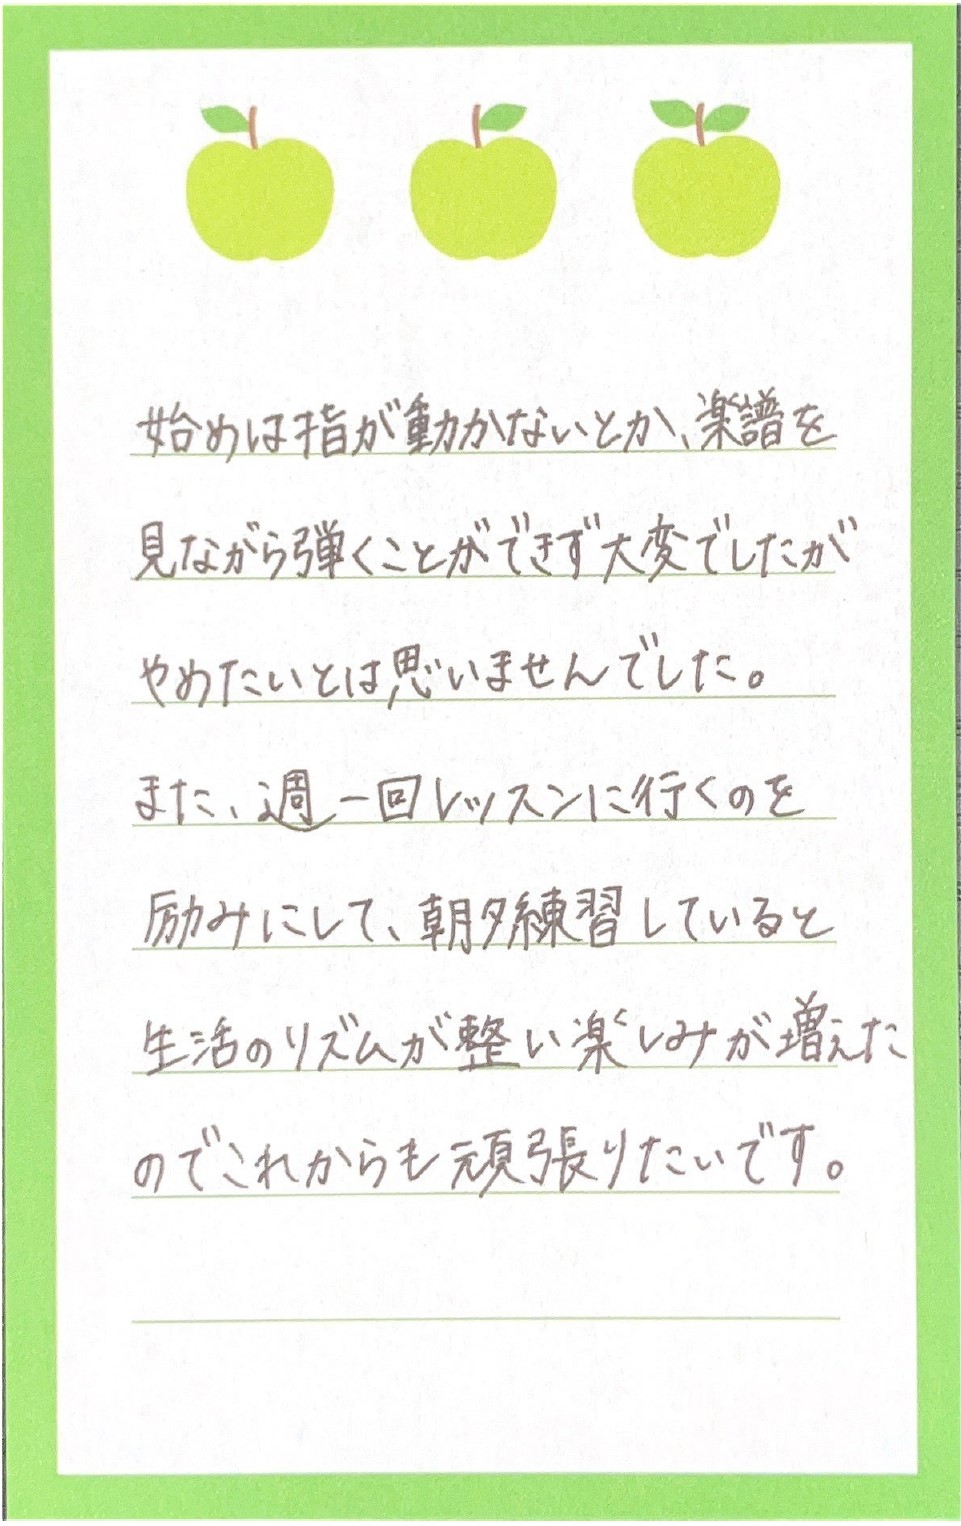 始めは指が動かないとか、楽譜を
見ながら弾くことができず大変でしたが
やめたいとは思いませんでした。
また、週一回レッスンに行くのを
励みにして、朝夕練習していると
生活のリズムが整い楽しみが増えた
のでこれからも頑張りたいです。